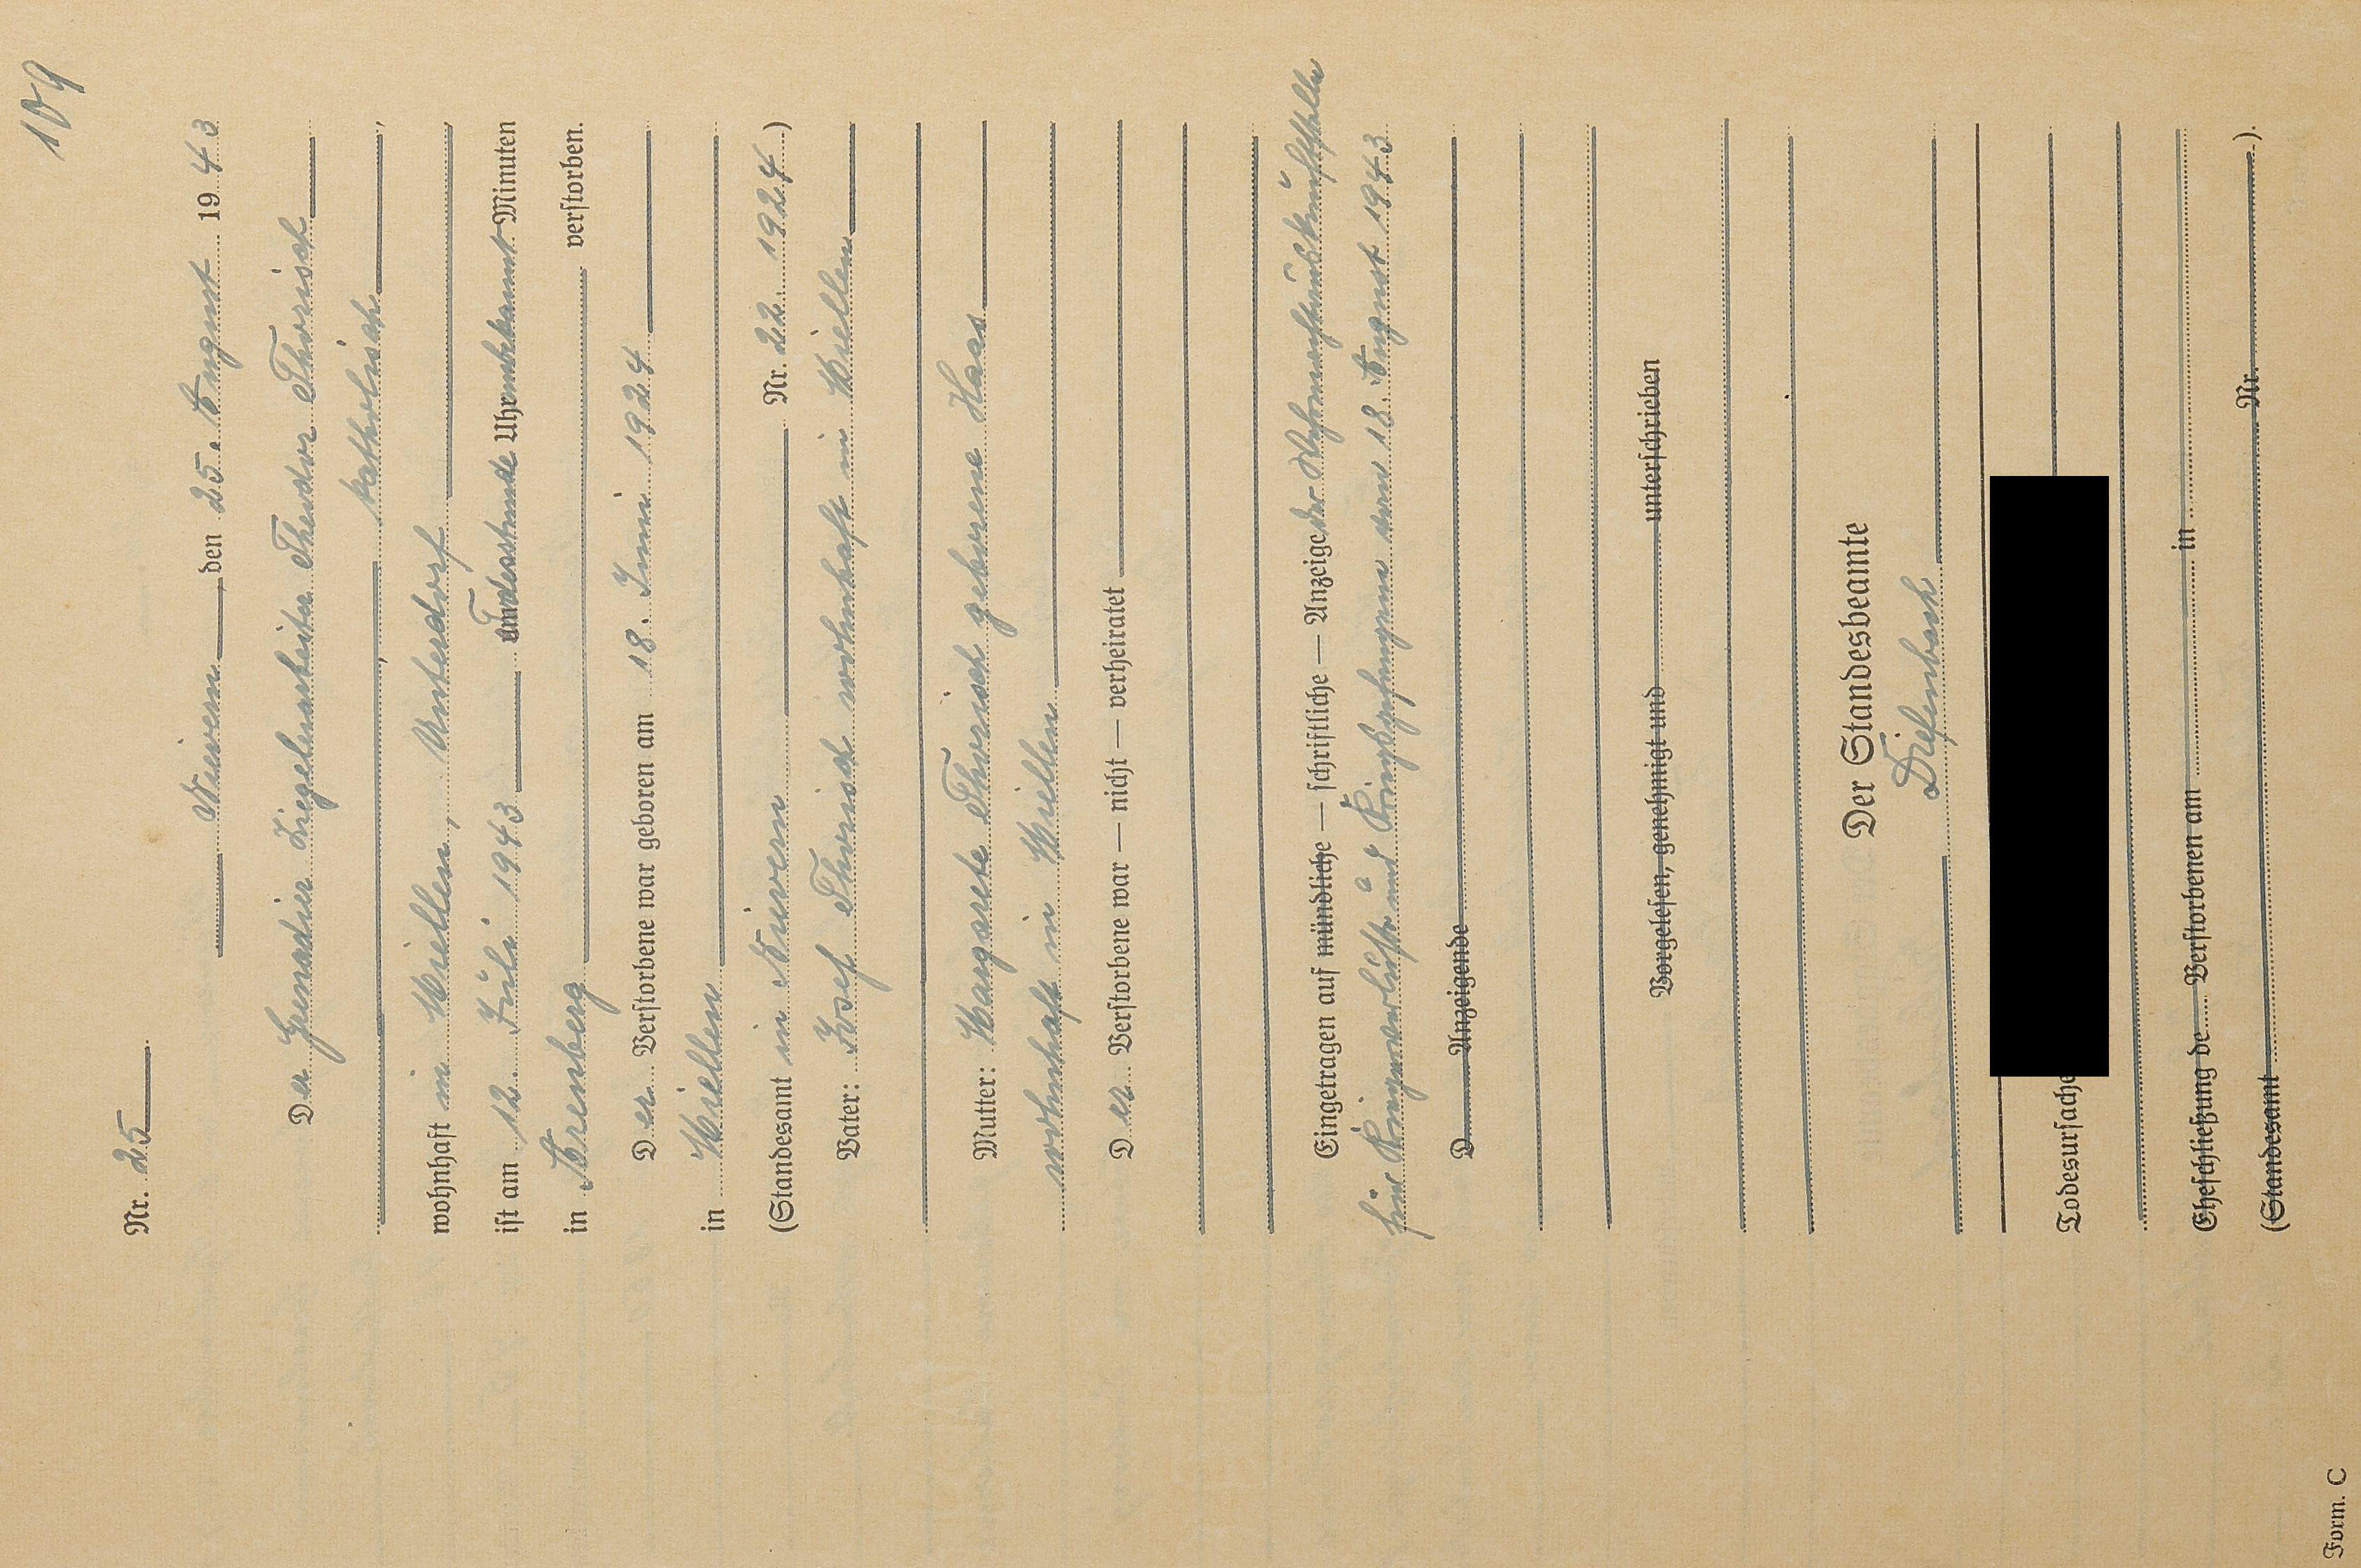 109
Nr. 25
Nievern, den 25. August 1943
Der Grenadier Ziegeleiarbeiter Theodor Thorisch
katholisch,
wohnhaft in Miellen, Unterdorf
ist am 12. Juli 1943 um Todesstunde Uhr unbekannt Minuten
in Arenberg verstorben.
Der Verstorbene war geboren am 18. Juni 1924
in Miellen
(Standesamt in Nievern Nr. 22 1924)
Vater: Josef Thorisch wohnhaft in Miellen
Mutter: Margarete Thorisch geborene Haas
wohnhaft in Miellen
Der Verstorbene war — nicht — verheiratet
Eingetragen auf mündliche — schriftliche — Anzeige der Wehrmachtauskunftstelle
für Kriegerverluste und Kriegsgefangene vom 18. August 1943
D Anzeigende
Vorgelesen, genehmigt und unterschrieben
Der Standesbeamte
Diefenbach
Todesursache
Eheschließung de Verstorbenen am in
(Standesamt Nr. ).
Form. C